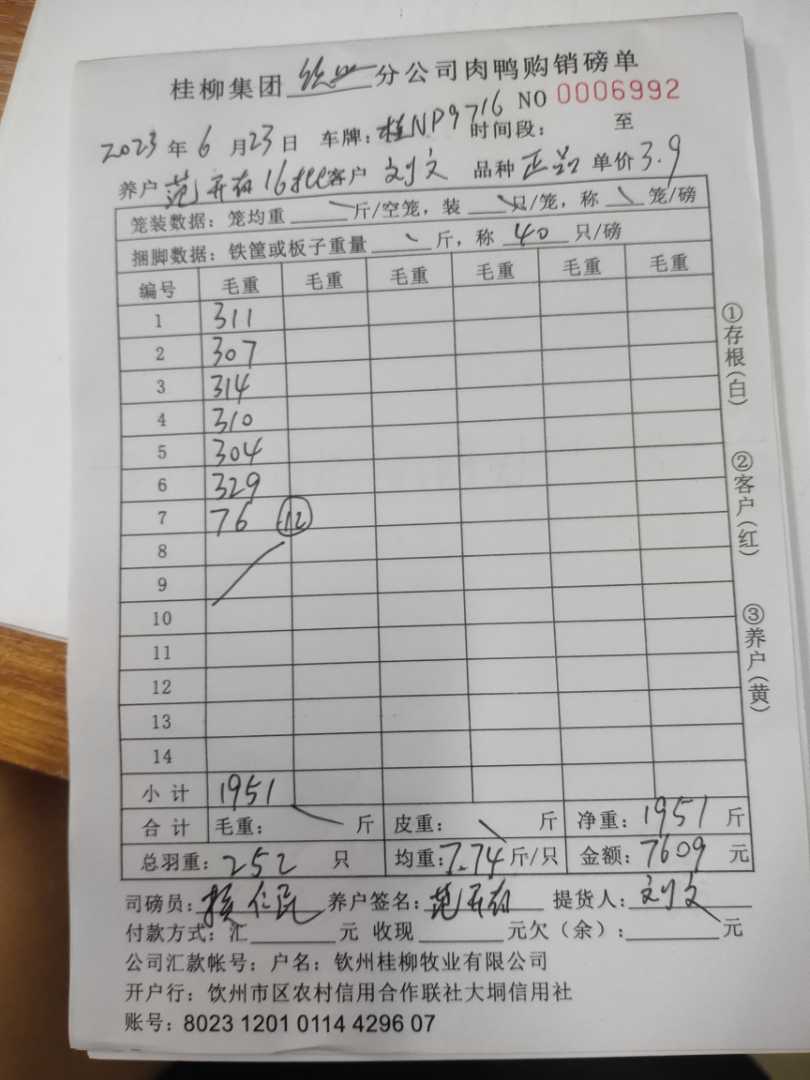 桂柳集团 钦州 分公司肉鸭购销磅单
NO 0006992
2023 年 6 月 23 日 车牌: 桂NP9716 时间段: 至
养户 范开存 16批 客户 刘文 品种 正品 单价 3.9
笼装数据: 笼均重 斤/空笼, 装 只/笼, 称 笼/磅
捆脚数据: 铁筐或板子重量 斤, 称 40 只/磅
编号 毛重 毛重 毛重 毛重 毛重 毛重
1 311
2 307
3 314
4 310
5 304
6 329
7 76 12
8
9
10
11
12
13
14
小计 1951
合计 毛重: 斤 皮重: 斤 净重: 1951 斤
总羽重: 252 只 均重: 7.74 斤/只 金额: 7609 元
司磅员: 养户签名: 范开存 提货人: 刘文
付款方式: 汇 元 收现 元欠(余): 元
公司汇款帐号: 户名: 钦州桂柳牧业有限公司
开户行: 饮州市区农村信用合作联社大垌信用社
账号: 8023 1201 0114 4296 07
①存根(白)
②客户(红)
③养户(黄)